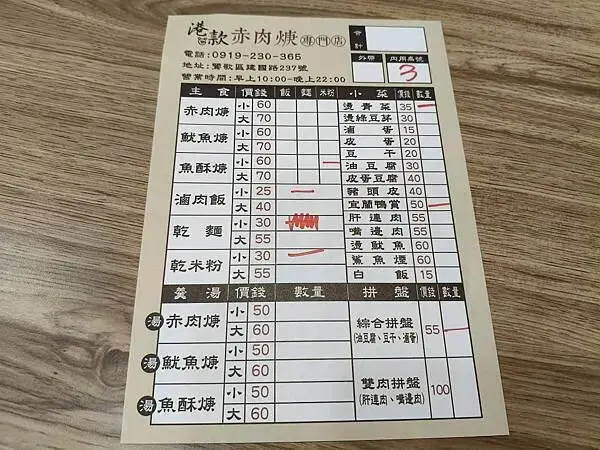 港款赤肉焿專門店
會計
電話:0919-230-365
地址:鶯歌區建國路237號
營業時間:早上10:00-晚上22:00
外帶 內用桌號
3
主食 價錢 飯 麵 米粉 小菜 價錢 數量
赤肉焿 小 60
大 70
魷魚焿 小 60
大 70
魚酥焿 小 60
大 70
滷肉飯 小 25
大 40
乾麵 小 30
大 55
乾米粉 小 30
大 55
燙青菜 35
燙綠豆芽 30
滷蛋 15
皮蛋 20
豆干 20
油豆腐 30
皮蛋豆腐 40
豬頭皮 40
宜蘭鴨賞 50
肝連肉 55
嘴邊肉 55
燙魷魚 60
鯊魚煙 60
白飯 15
羹湯 價錢 數量 拼盤 價錢 數量
湯 赤肉焿 小 50
大 60
湯 魷魚焿 小 50
大 60
湯 魚酥焿 小 50
大 60
綜合拼盤 55
(油豆腐、豆干、滷蛋)
雙肉拼盤 100
(肝連肉、嘴邊肉)